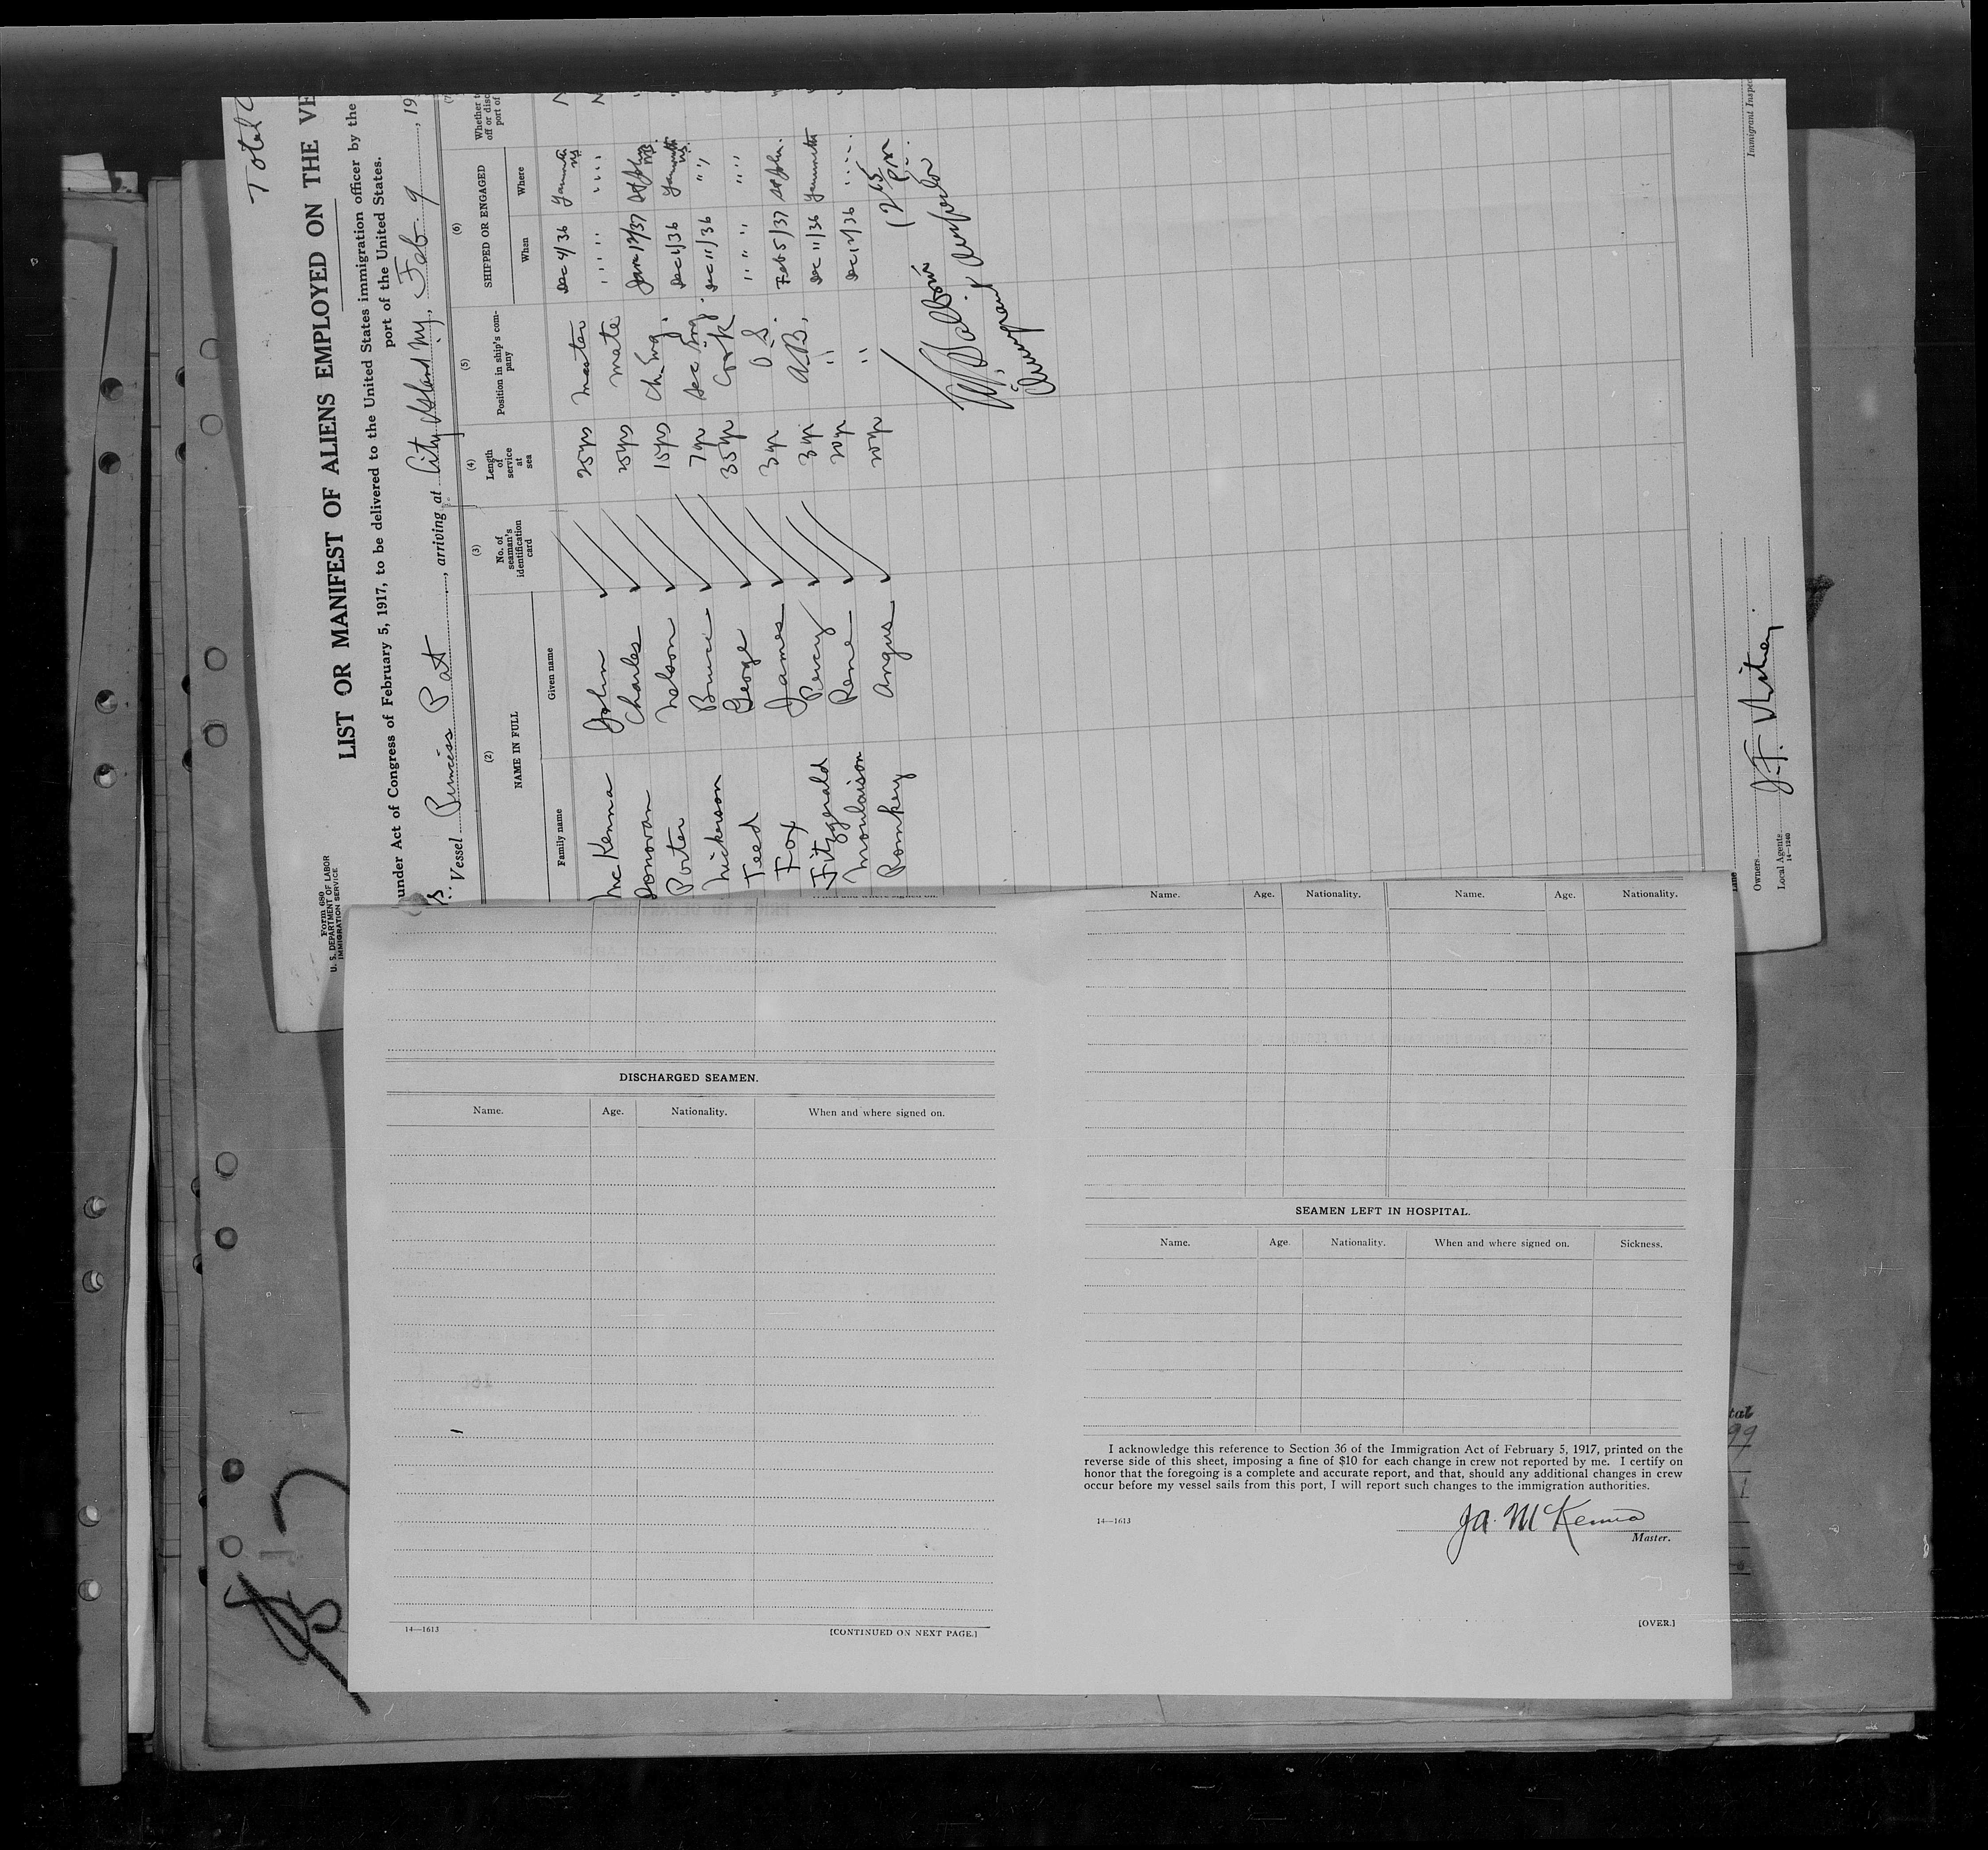 Total
Form 680
U. S. DEPARTMENT OF LABOR
IMMIGRATION SERVICE
LIST OR MANIFEST OF ALIENS EMPLOYED ON THE VE
under Act of Congress of February 5, 1917, to be delivered to the United States immigration officer by the
port of the United States.
S. Vessel Princess Pat, arriving at City Island NY, Feb. 9, 19
(2) (3) (4) (5) (6) (7)
NAME IN FULL No. of seaman's identification card Length of service at sea Position in ship's company SHIPPED OR ENGAGED Whether t
off or disc
port of
Family name Given name When Where
McKenna John 25 yrs Master Dec 4/36 Yarmouth NS
Donovan Charles 25 yrs mate " " " " " " "
Porter Nelson 15 yrs Ch. Eng. Jan 12/37 St John NB.
Nickerson Bruce 7 yr Sec Eng. Dec 11/36 " "
Teed George 35 yr Cook " " " " "
Fox James 3 yr O.S. Feb 5/37 St John.
Fitzgerald Percy 3 yr A.B. Dec 11/36 Yarmouth
Moulaison Rene 20 yr " Dec 12/36 " "
Romkey Angus 20 yr "
Immigrant Inspector
Immigrant Inspec
Owners
Local Agents J. F. Whitney
14—1240
Name. Age. Nationality. Name. Age. Nationality.
DISCHARGED SEAMEN.
Name. Age. Nationality. When and where signed on.
14—1613
[CONTINUED ON NEXT PAGE.]
SEAMEN LEFT IN HOSPITAL.
Name. Age. Nationality. When and where signed on. Sickness.
I acknowledge this reference to Section 36 of the Immigration Act of February 5, 1917, printed on the
reverse side of this sheet, imposing a fine of $10 for each change in crew not reported by me. I certify on
honor that the foregoing is a complete and accurate report, and that, should any additional changes in crew
occur before my vessel sails from this port, I will report such changes to the immigration authorities.
14—1613
Ja. McKenna
Master.
[OVER.]